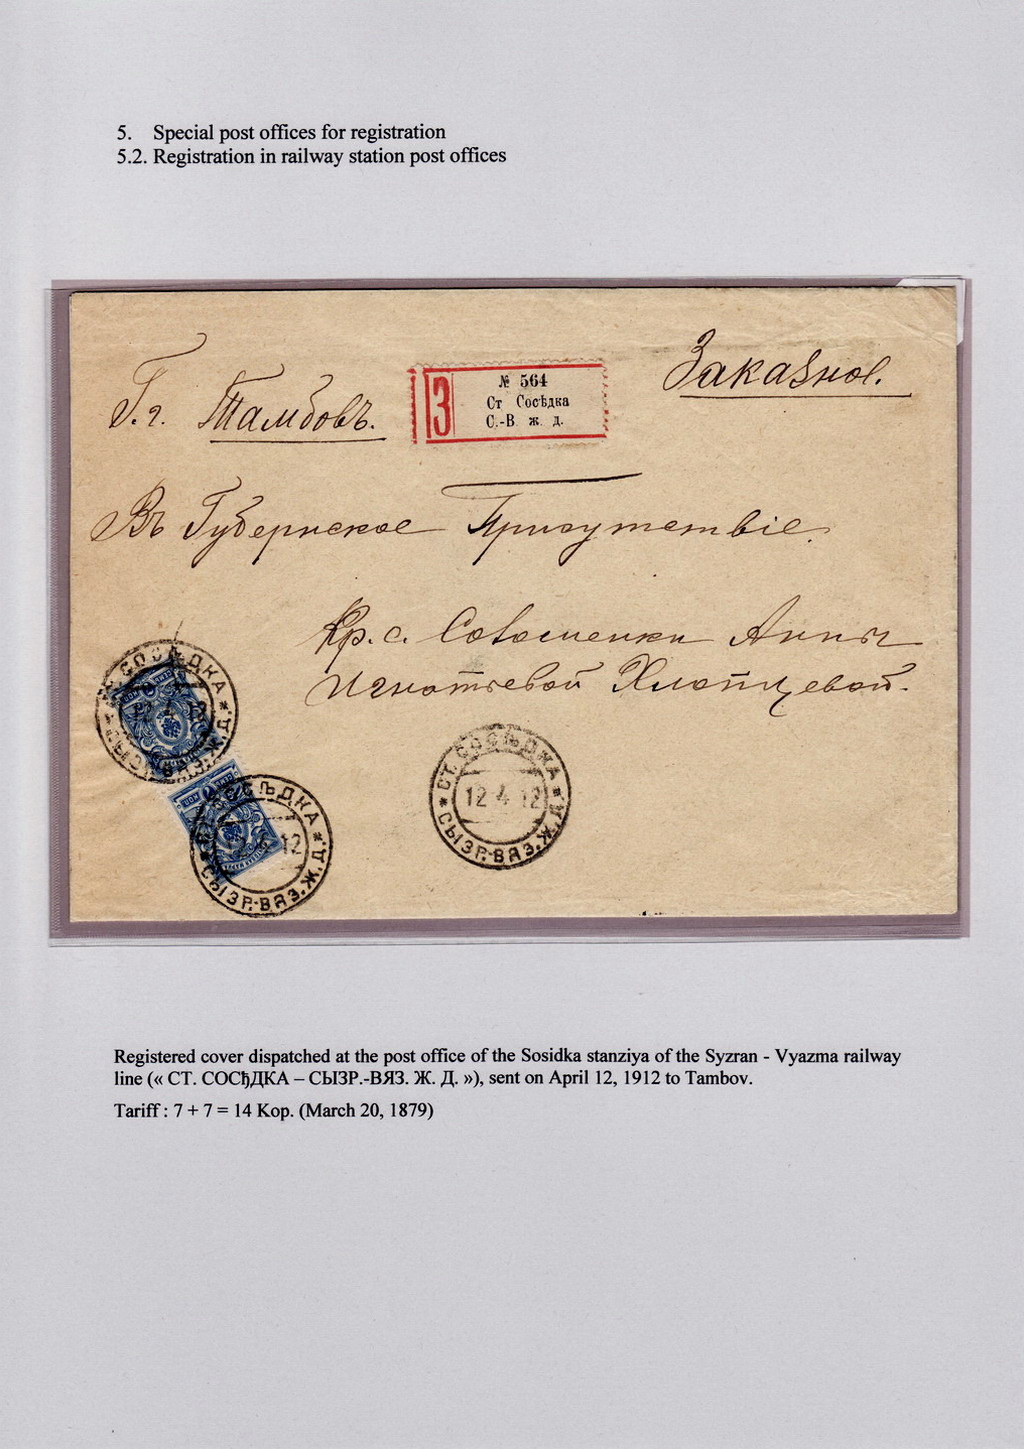 5. Special post offices for registration
5.2. Registration in railway station post offices
Заказное.
Г. г. Тамбовъ.
З
№ 564
Ст Сосѣдка
С.-В. ж. д.
Въ Губернское Присутствіе.
Кр. с. Анны
Игнатьевой
СТ. СОСѢДКА
СЫЗР.-ВЯЗ. Ж. Д.
СОСѢДКА
12
СЫЗР.-ВЯЗ. Ж. Д.
СТ. СОСѢДКА
12 4 12
СЫЗР.-ВЯЗ. Ж. Д.
Registered cover dispatched at the post office of the Sosidka stanziya of the Syzran - Vyazma railway
line (« СТ. СОСЂДКА – СЫЗР.-ВЯЗ. Ж. Д. »), sent on April 12, 1912 to Tambov.
Tariff : 7 + 7 = 14 Kop. (March 20, 1879)